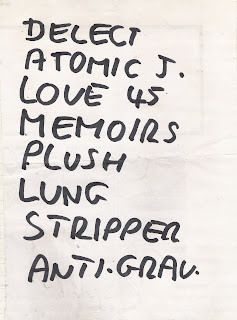 DELECT
ATOMIC J.
LOVE 45
MEMOIRS
PLUSH
LUNG
STRIPPER
ANTI.GRAV.